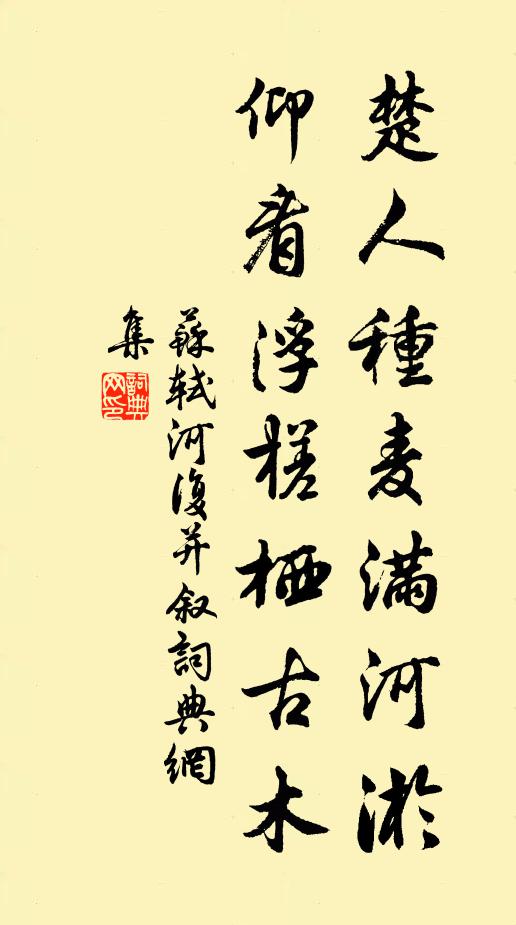 楚人種麦滿河淤
仰看浮槎栖古木
蘇軾河復并叙詞典網
集
詞典网印